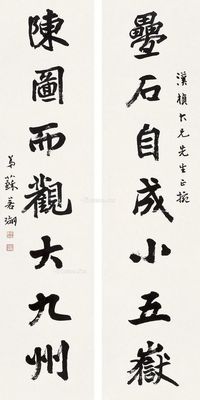 漢槙大兄先生正捥
疊石自成小五嶽
陳圖而觀大九州
弟蘇若瑚